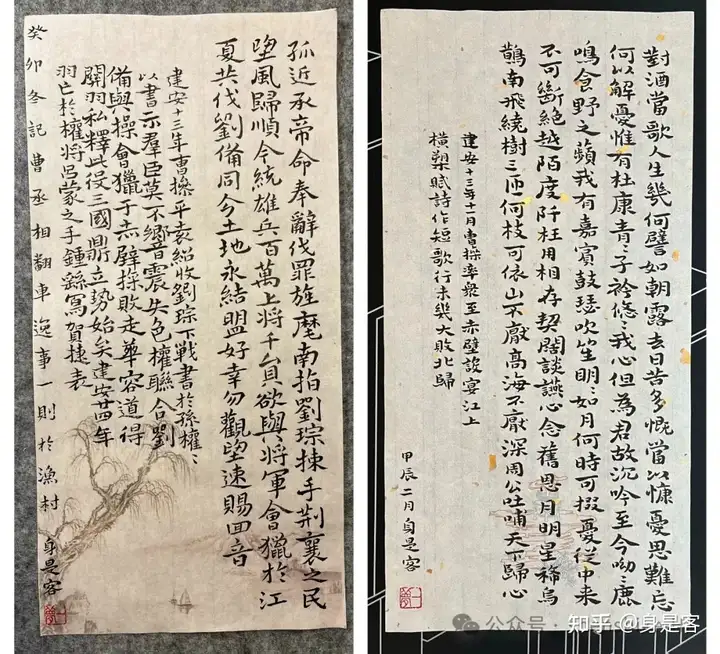 孤近承帝命奉辭伐罪旌麾南指劉琮拺手荊襄之民
望風歸順今統雄兵百萬上將千員欲與將軍會獵於江
夏共伐劉備同分土地永結盟好幸勿觀望速賜回音
建安十三年曹操平袁紹收劉琮下戰書於孫權〻
以書示羣臣莫不響震失色權聯合劉
備與操會獵于赤壁操敗走華容道得
關羽私釋此役三國鼎立勢始矣建安廿四年
羽亡於權將呂蒙之手鍾繇寫賀捷表
癸卯冬記曹丞相翻車逸事一則於漁村 身是客
對酒當歌人生幾何譬如朝露去日苦多慨當以慷憂思難忘
何以解憂惟有杜康青〻子衿悠〻我心但為君故沉吟至今呦〻鹿
鳴食野之蘋我有嘉賓鼓瑟吹笙明〻如月何時可掇憂從中来
不可斷絕越陌度阡枉用相存契闊談讌心念舊恩月明星稀烏
鵲南飛繞樹三匝何枝可依山不厭高海不厭深周公吐哺天下歸心
建安十三年十一月曹操率衆至赤壁設宴江上
橫槊賦詩作短歌行未幾大敗北歸
甲辰二月身是客
公众号
知乎 @身是客